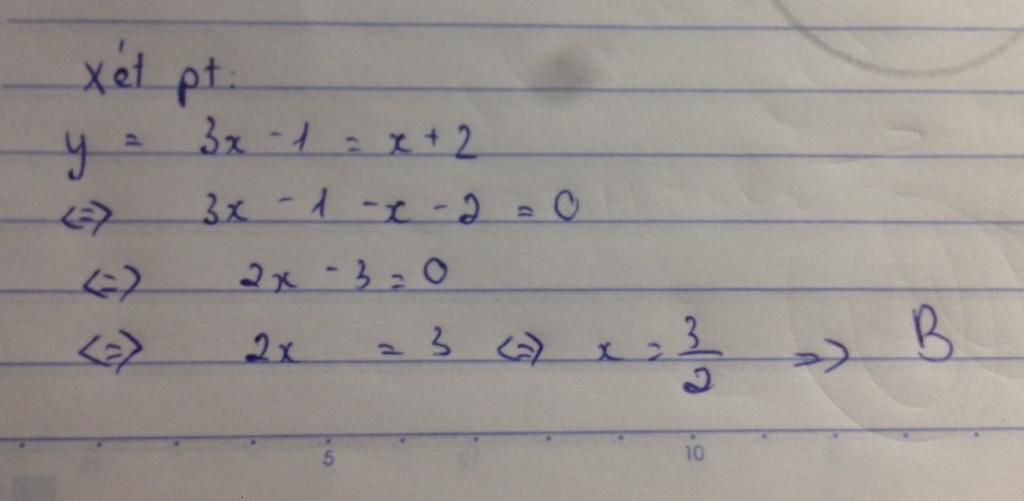 xét pt:
y = 3x - 1 = x + 2
<=> 3x - 1 - x - 2 = 0
<=> 2x - 3 = 0
<=> 2x = 3 <=> x = 3/2 => B
5 10